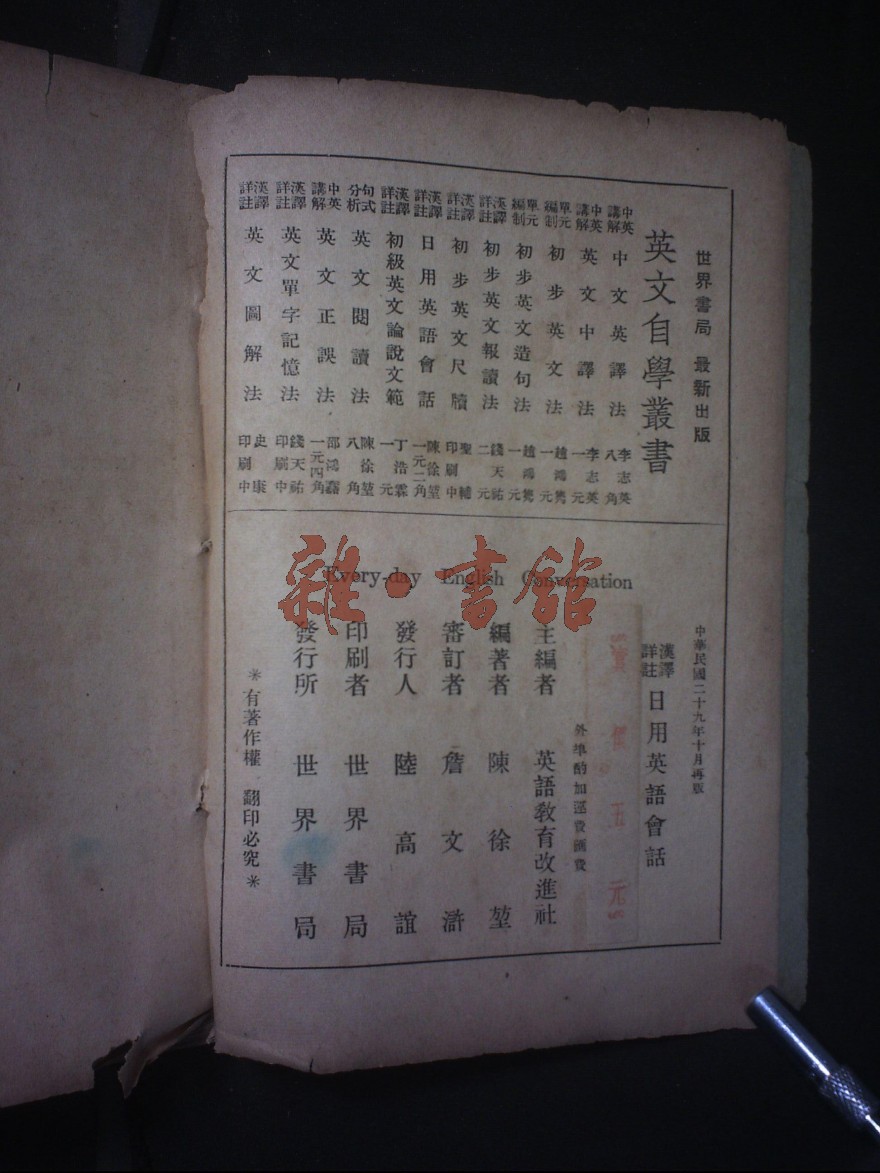 世界書局 最新出版
英文自學叢書
中英講解 中文英譯法 李志英 八角
中英講解 英文中譯法 李志英 一元
單元編制 初步英文法 趙鴻雋 一元
單元編制 初步英文造句法 趙鴻雋 一元
漢譯詳註 初步英文報讀法 錢天祐 二元
漢譯詳註 初步英文尺牘 聖輔 印刷中
漢譯詳註 日用英語會話 陳徐堃 一元二角
漢譯詳註 初級英文論說文範 丁浩霖 一元
句式分析 英文閱讀法 陳徐堃 八角
中英講解 英文正誤法 邵鴻馨 一元四角
漢譯詳註 英文單字記憶法 錢天祐 印刷中
漢譯詳註 英文圖解法 史康 印刷中
Every-day English Conversation
中華民國二十九年十月再版
漢譯詳註 日用英語會話
實價五元
外埠酌加運費匯費
主編者 英語教育改進社
編著者 陳徐堃
審訂者 詹文滸
發行人 陸高誼
印刷者 世界書局
發行所 世界書局
*有著作權 翻印必究*
雜·書館